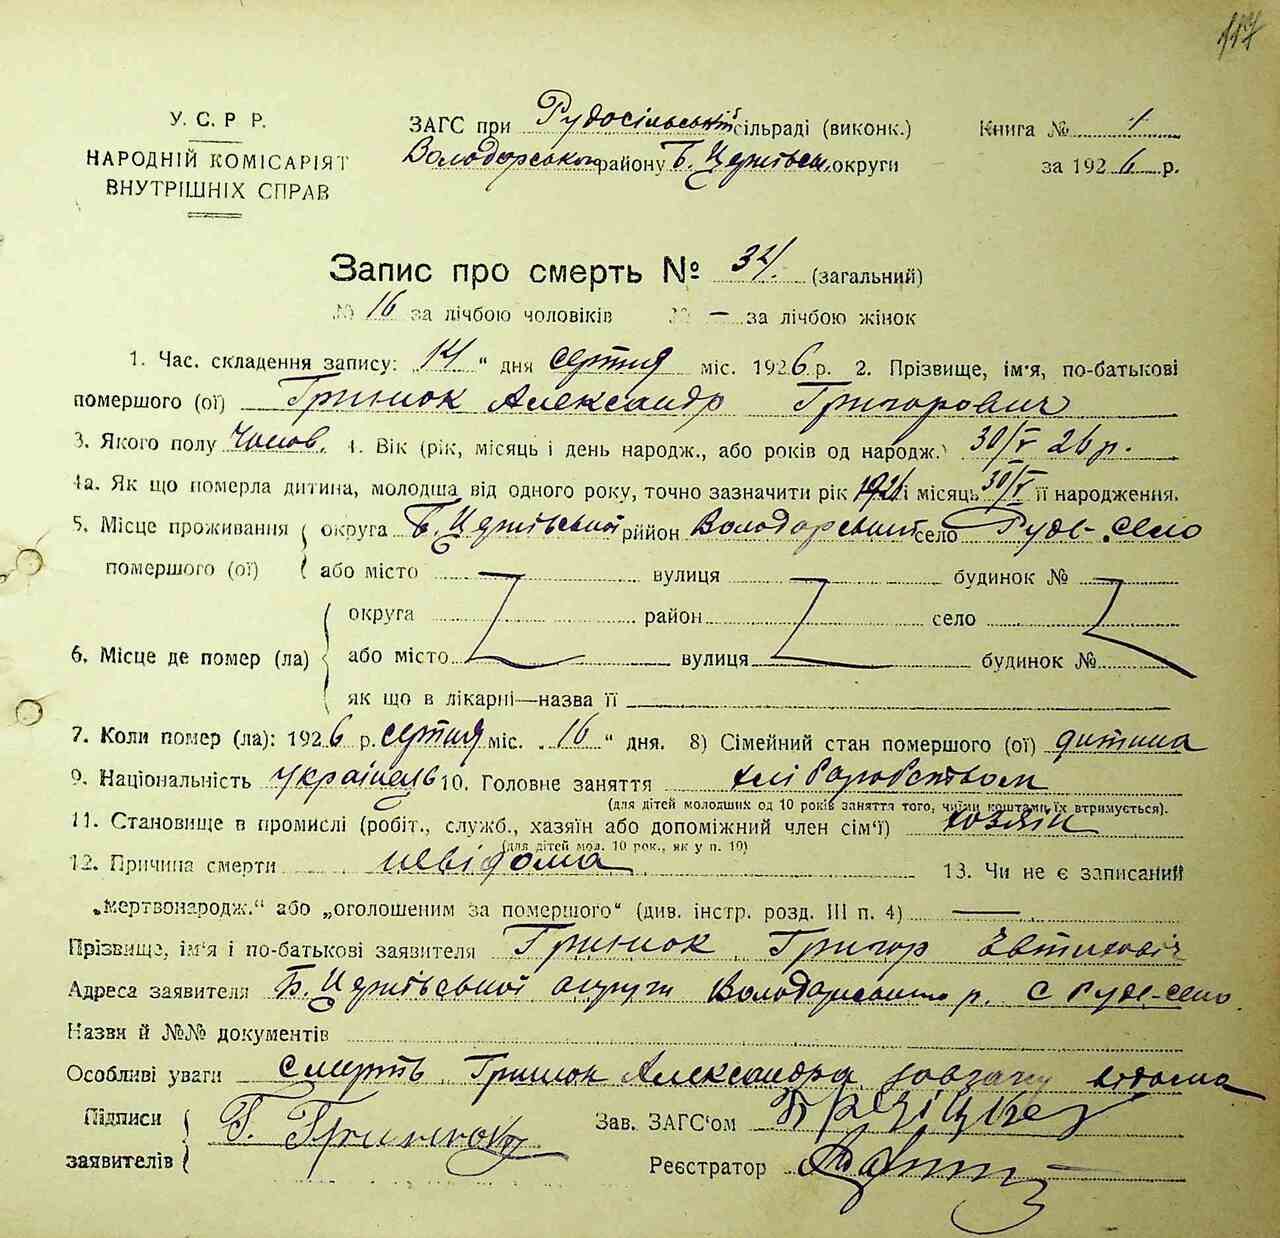 117
У. С. Р. Р.
НАРОДНІЙ КОМІСАРІЯТ
ВНУТРІШНІХ СПРАВ
ЗАГС при Рудосільській сільраді (виконк.)
Володарського району Б. Церківськ. округи
Книга № 1
за 1926 р.
Запис про смерть № 34. (загальний)
№ 16 за лічбою чоловіків № — за лічбою жінок
1. Час. складення запису: „14“ дня серпня міс. 1926 р. 2. Прізвище, ім'я, по-батькові
помершого (ої) Гринюк Александр Григорович
3. Якого полу Чолов. 4. Вік (рік, місяць і день народж., або років од народж.) 30/V 26 р.
4а. Як що померла дитина, молодша від одного року, точно зазначити рік 1926 і місяць 30/V її народження.
5. Місце проживання помершого (ої) округа Б. Церківської рийон Володарський село Руде-село
або місто вулиця будинок №
6. Місце де помер (ла) округа район село
або місто вулиця будинок №
як що в лікарні—назва її
7. Коли помер (ла): 1926 р. серпня міс. „16“ дня. 8) Сімейний стан помершого (ої) дитина
9. Національність українець 10. Головне заняття хліборобством
(для дітей молодших од 10 років заняття того, чиїми коштами їх втримується).
11. Становище в промислі (робіт., служб., хазяїн або допоміжний член сім'ї) хозяїн
(для дітей мол. 10 рок., як у п. 10)
12. Причина смерти невідома 13. Чи не є записаний
„мертвонародж.“ або „оголошеним за помершого“ (див. інстр. розд. III п. 4) —
Прізвище, ім'я і по-батькові заявителя Гринюк Григор Євтихович
Адреса заявителя Б. Церківської округи Володарського р. с Руде-село
Назви й №№ документів
Особливі уваги смерть Гринюк Александра
Підписи заявителів Г. Гринюк
Зав. ЗАГС'ом
Реєстратор